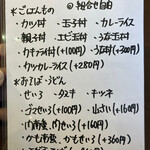 *ごはんもの ◎ 組合せ自由
・カツ丼 ・玉子丼 ・カレーライス
・親子丼 ・エビ玉丼 ・うな玉丼
・カキフライ丼(+100円) ・うな丼(+300円)
・カツカレーライス(+280円)
*おそば・うどん
・せいろ ・タヌキ ・キツネ
・ごませいろ(+100円) ・山さい(+160円)
・肉南蛮、肉せいろ(+160円)
・かも南蛮、かもせいろ(+360円)